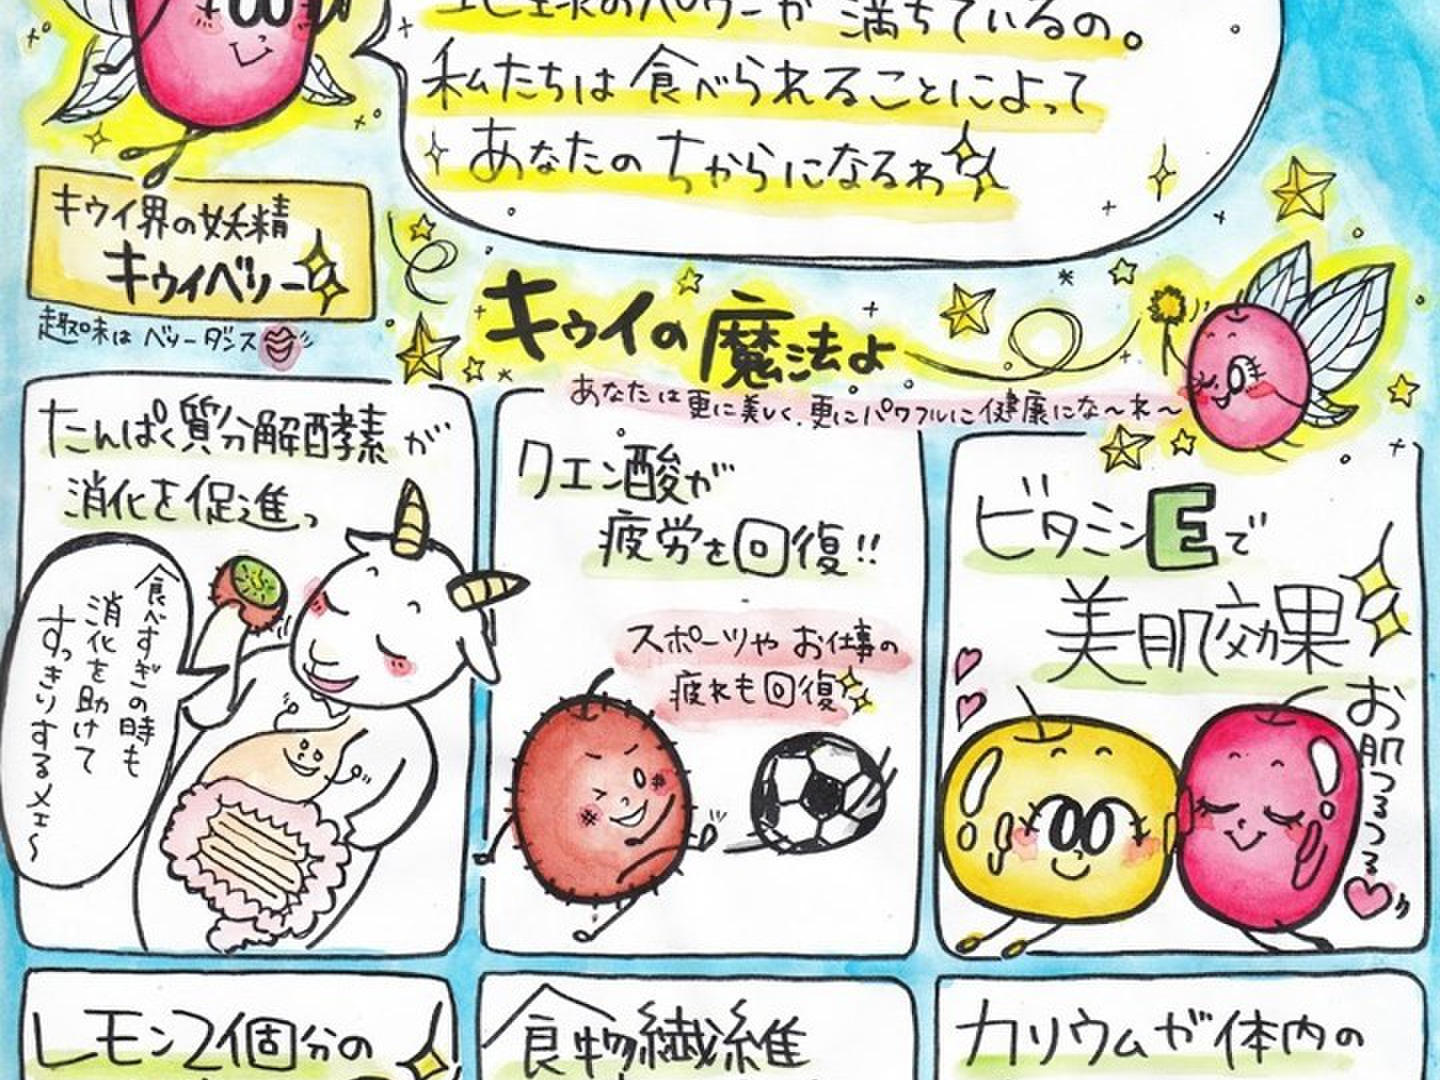 のパワーが満ちているの。
私たちは食べられることによって
あなたのちからになるわ
キウイ界の妖精
キウイベリー
趣味はベリーダンス
キウイの魔法よ
あなたは更に美しく、更にパワフルに健康にな〜れ〜
たんぱく質分解酵素が
消化を促進っ
食べすぎの時も
消化を助けて
すっきりするメェ〜
クエン酸が
疲労を回復!!
スポーツやお仕事の
疲れも回復
ビタミンEで
美肌効果
お肌つるつる
レモン2個分の
食物繊維
カリウムが体内の